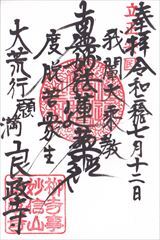 奉拝 令和 七月十二日
我闡大乗教
南無妙法蓮華経
度脱苦衆生
大荒行願満 良政寺
妙信山